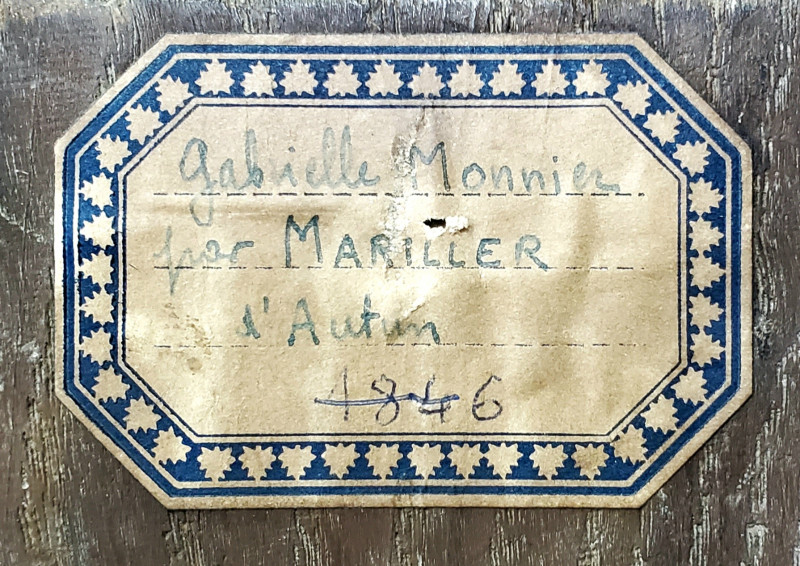 Gabrielle Monnier
par MARILLER
d'Autun
1846